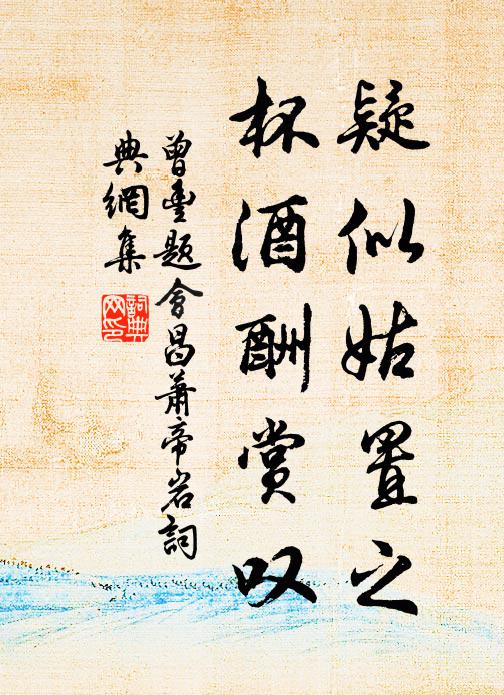 疑似姑置之
杯酒酬赏叹
曾丰题会昌萧帝岩词
典網集
詞典
网印